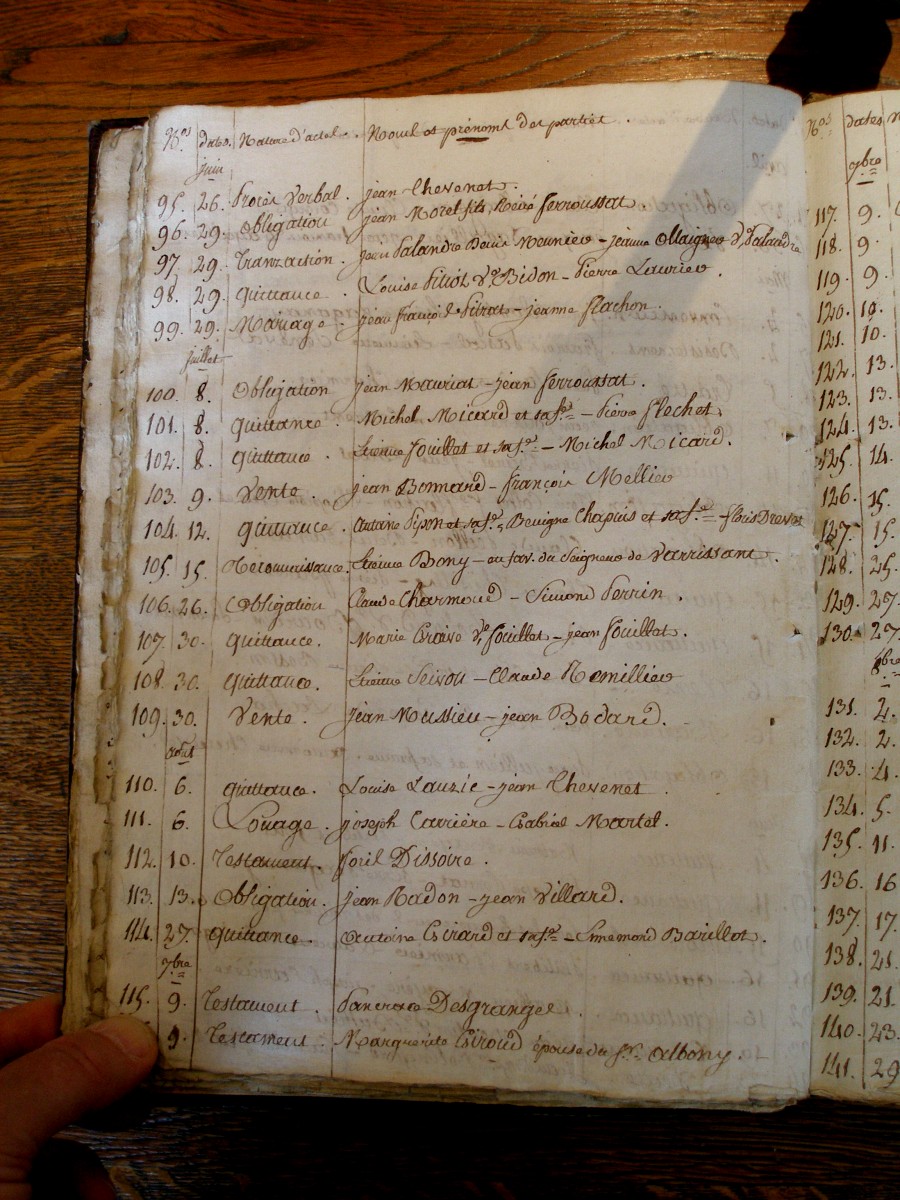 Nos. dates. Nature d'actes. Noms et prénoms des parties.
juin
95. 26. Procès Verbal. jean Chevenet.
96. 29. Obligation jean Morel fils, ferroussat
97. 29. Tranzaction. jean Palandre Denis Meunier - jeanne Ollaignier Ve. Palandre
98. 29. quittance. Louise Ve. Bidon - Pierre Laurier.
99. 29. Mariage. jean françois - jeanne flachon.
juillet
100. 8. Obligation jean Mauriat - jean ferroussat.
101. 8. quittance. Michel Micard et sa fe. - Pierre flechet.
102. 8. quittance. Etienne fouillet et sa fe. - Michel Micard.
103. 9. Vente. jean Bonnard - françois Mellier
104. 12. quittance. Antoine et sa fe. Benigne Chapuis et sa fe. - floris Drevet
105. 15. Reconnaissance. Etienne Bony - en fav. du Seigneur de Varrissant.
106. 26. Obligation Claude Charmond - Simond Perrin.
107. 30. quittance. Marie Ve. fouillat - jean fouillat.
108. 30. quittance. Etienne - Claude Romillier
109. 30. Vente. jean Moussieu - jean Bodard.
aoust
110. 6. quittance. Louise Lauzie - jean Chevenet
111. 6. Louage. joseph Carrière - Gabriel Martel.
112. 10. Testament. Dissoire.
113. 13. Obligation. jean Radon - jean Villard.
114. 27. quittance. Antoine Girard et sa fe. - Simemond Barillot.
7bre
115. 9. Testament. Pancrace Desgranges.
9. Testament. Marguerite Giroud épouse du sr. Albony.
Nos. dates
7bre
117. 9.
118. 9.
119. 9.
120. 10.
121. 10.
122. 13.
123. 13.
124. 13.
125. 14.
126. 15.
127. 15.
128. 25.
129. 27.
130. 27.
8bre
131. 2.
132. 2.
133. 4.
134. 5.
135. 11.
136. 16
137. 17
138. 21.
139. 21.
140. 23.
141. 29